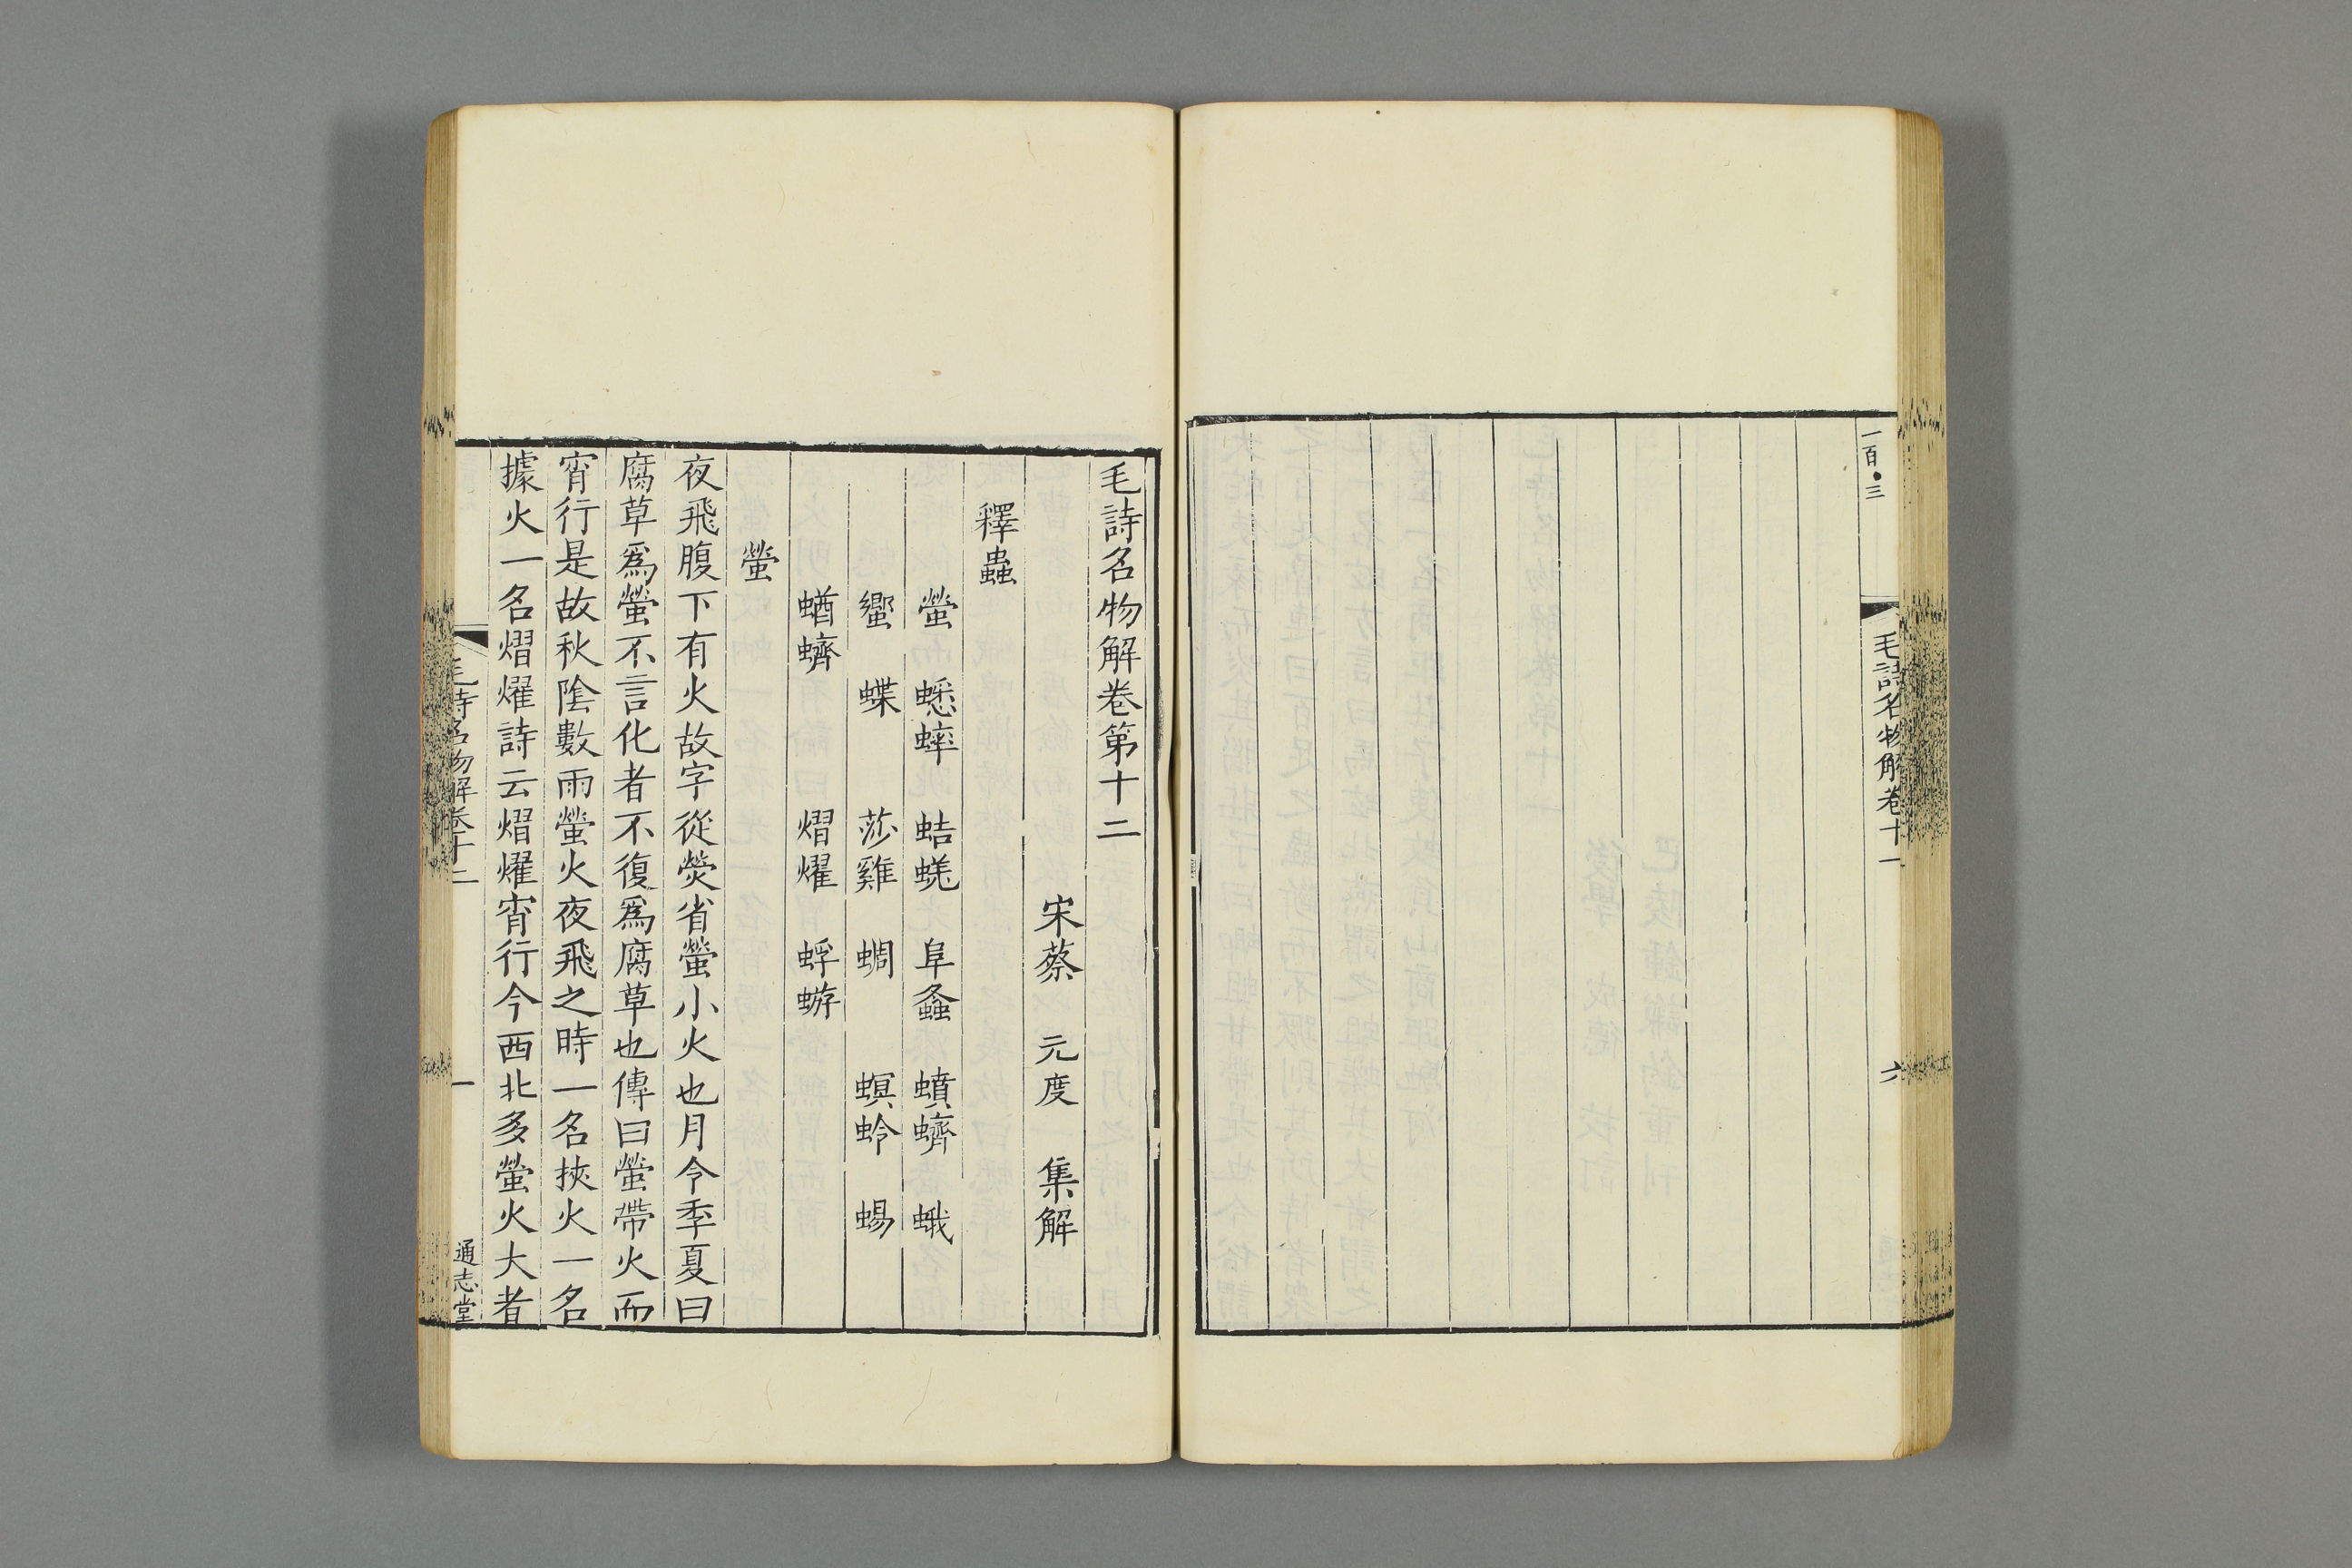 一百•三
毛詩名物解卷十一
六
毛詩名物解卷第十二
宋蔡　元度　集解
釋蟲
螢　蟋蟀　蛣蜣　阜螽　蟦蠐　蛾
蠁　蝶　莎雞　蜩　螟蛉　蜴
蝤蠐　熠燿　蜉蝣
螢
夜飛腹下有火故字從熒省螢小火也月令季夏曰
腐草爲螢不言化者不復爲腐草也傳曰螢帶火而
宵行是故秋陰數雨螢火夜飛之時一名挾火一名
據火一名熠燿詩云熠燿宵行今西北多螢火大者
毛詩名物解卷十二
一
通志堂